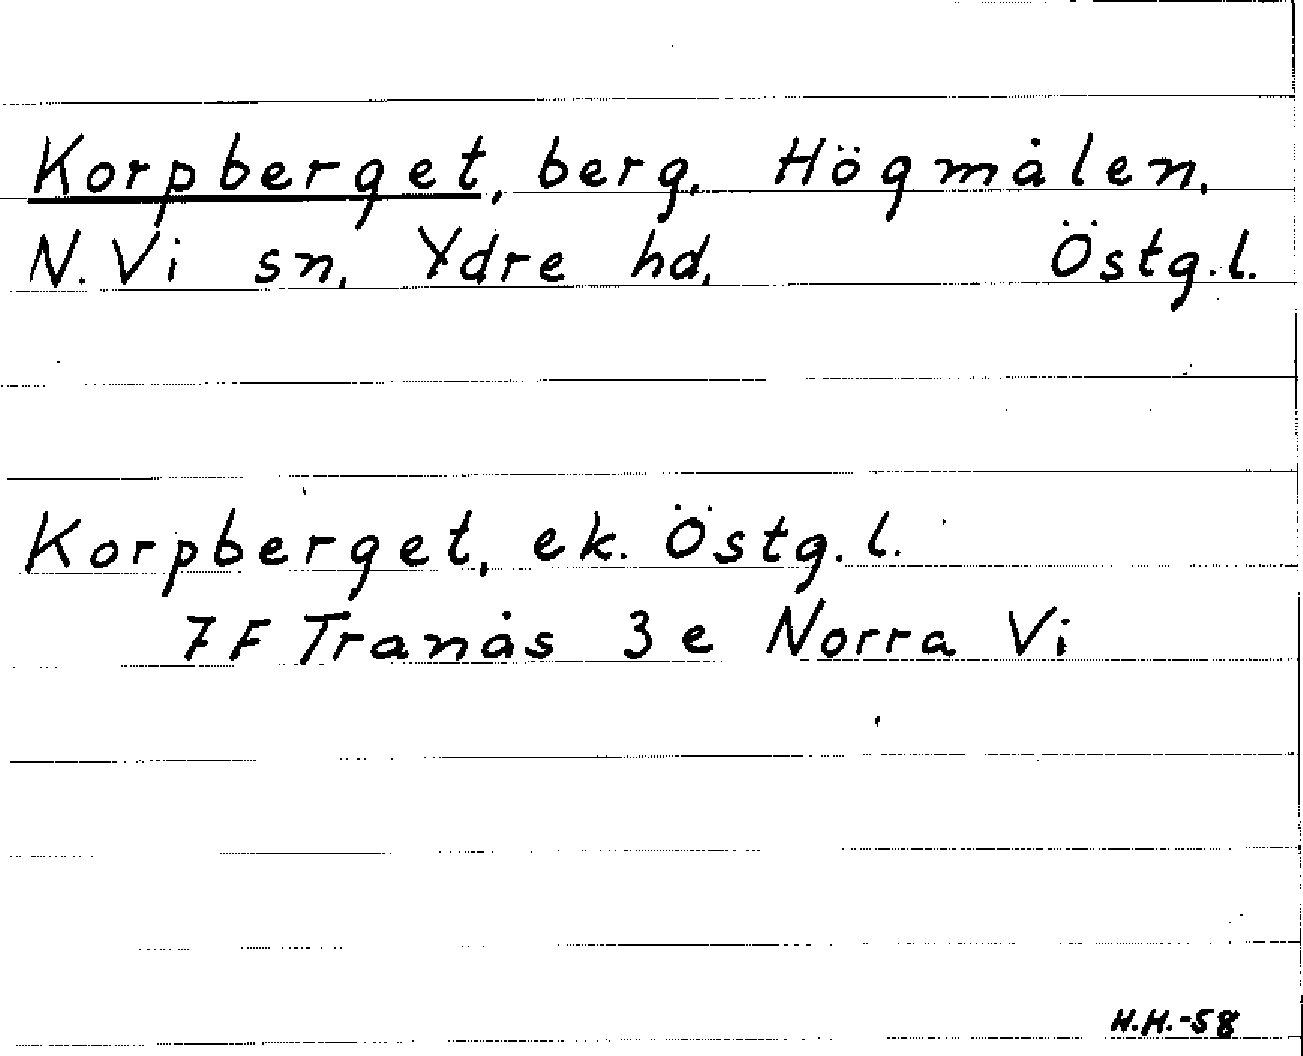 Korpberget, berg, Högmålen,
N. Vi sn, Ydre hd, Östg.l.
Korpberget, ek. Östg.l.
7 F Tranås 3 e Norra Vi
H.H.-58